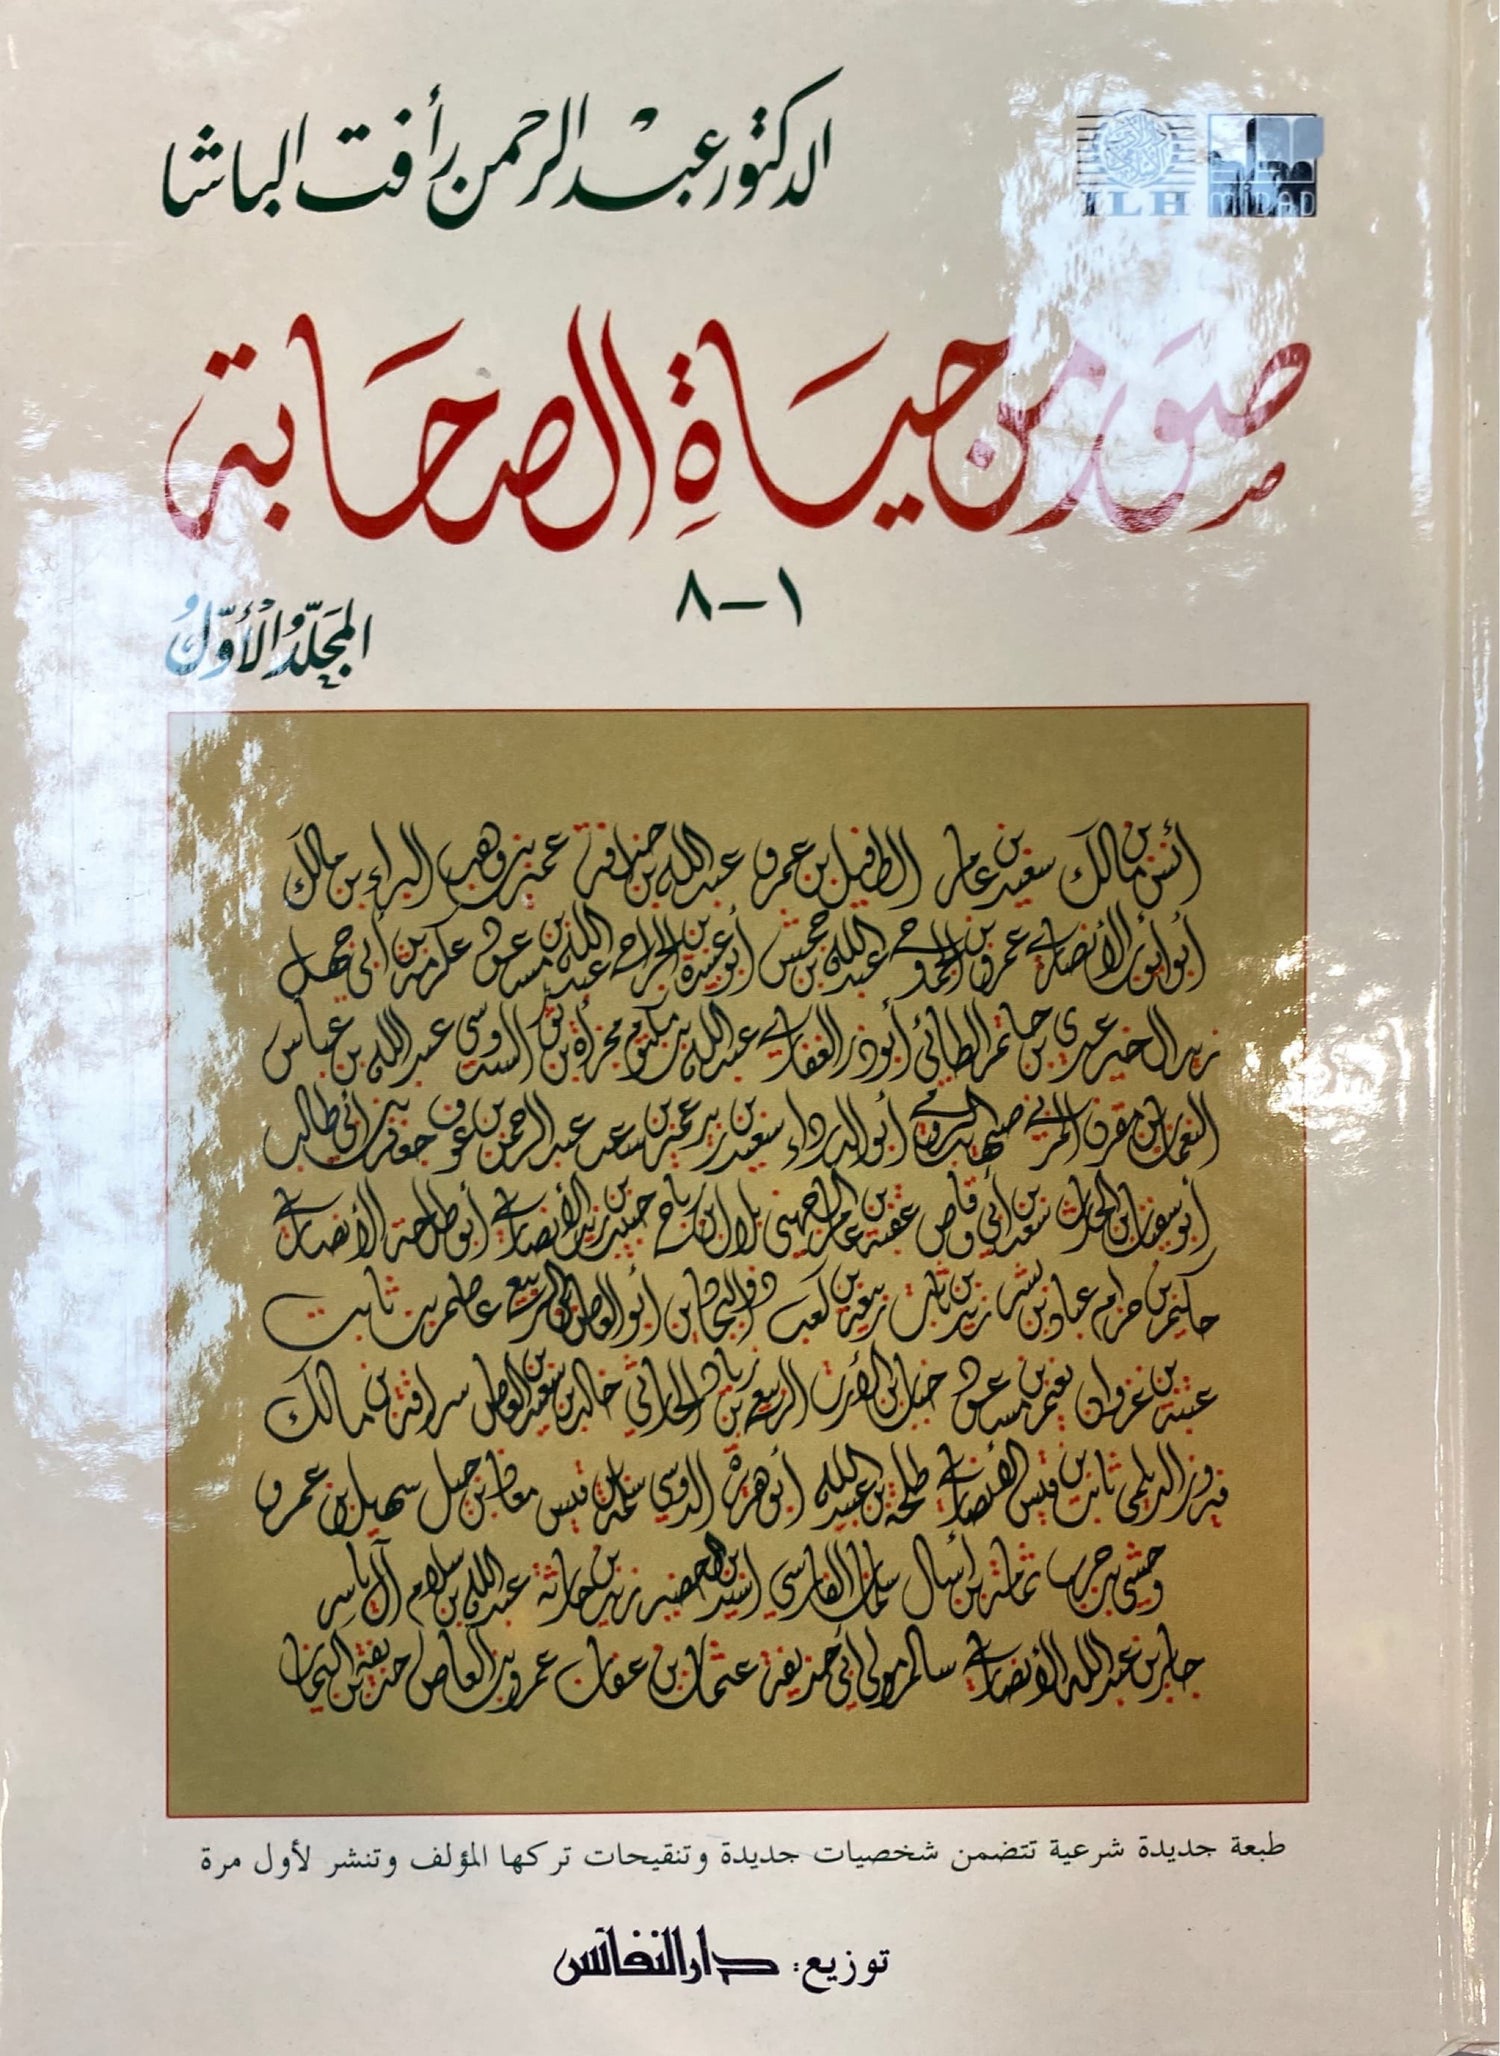 الدكتور عبد الرحمن رأفت الباشا
ILH
MIDAD
صُوَر من حَيَاةِ الصحَابة
١-٨
المجَلّدُ الأوّلُ
أنس بن مالك سعيد بن عامر الطفيل بن عمرو عبد الله بن حذافة عمير بن وهب البراء بن مالك
أبو أيوب الأنصاري عمرو بن الجموح عبد الله بن جحش أبو عبيدة بن الجراح عبد الله بن مسعود عكرمة بن أبي جهل
زيد الخير عدي بن حاتم الطائي أبو ذر الغفاري عبد الله بن أم مكتوم مجزأة بن ثور السدوسي عبد الله بن عباس
النعمان بن مقرن المزني صهيب الرومي أبو الدرداء سعيد بن زيد عمير بن سعد عبد الرحمن بن عوف جعفر بن أبي طالب
أبو سفيان بن الحارث سعد بن أبي وقاص عقبة بن عامر الجهني بلال بن رباح حبيب بن زيد الأنصاري أبو طلحة الأنصاري
حكيم بن حزام عباد بن بشر زيد بن ثابت ربيعة بن كعب ذو البجادين أبو العاص بن الربيع عاصم بن ثابت
عتبة بن غزوان نعيم بن مسعود خباب بن الأرت الربيع بن زياد الحارثي خالد بن سعيد بن العاص سراقة بن مالك
فيروز الديلمي ثابت بن قيس الأنصاري طلحة بن عبيد الله أبو هريرة الدوسي سلمة بن قيس معاذ بن جبل سهيل بن عمرو
وحشي بن حرب ثمامة بن أثال سلمان الفارسي أسيد بن الحضير زيد بن حارثة عبد الله بن سلام آل ياسر
جابر بن عبد الله الأنصاري سالم مولى أبي حذيفة عثمان بن عفان عمرو بن العاص حذيفة بن اليمان
طبعة جديدة شرعية تتضمن شخصيات جديدة وتنقيحات تركها المؤلف وتنشر لأول مرة
توزيع: دار النفائس